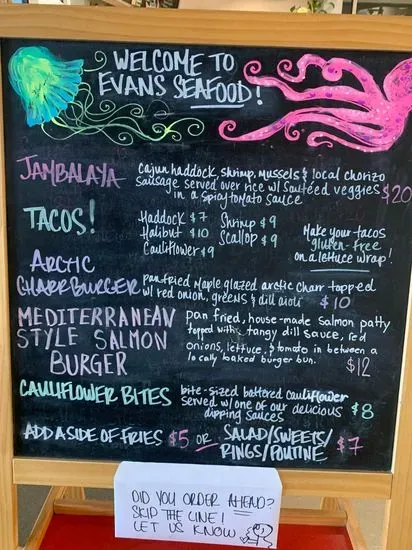 WELCOME TO
EVANS SEAFOOD!
JAMBALAYA
Cajun haddock, shrimp, mussels & local chorizo
sausage served over rice w/ sauteed veggies
in a spicy tomato sauce $20
TACOS!
Haddock $7 Shrimp $9
Halibut $10 Scallop $9
Cauliflower $9
Make your tacos
gluten-free
on a lettuce wrap!
ARCTIC
CHARR BURGER
pan fried maple glazed arctic charr topped
w/ red onion, greens & dill aioli $10
MEDITERRANEAN
STYLE SALMON
BURGER
pan fried, house-made salmon patty
topped with a tangy dill sauce, red
onions, lettuce, & tomato in between a
locally baked burger bun. $12
CAULIFLOWER BITES
bite-sized battered cauliflower
served w/ one of our delicious $8
dipping sauces
ADD A SIDE OF FRIES $5 OR SALAD/SWEETS/
RINGS/POUTINE $7
DID YOU ORDER AHEAD?
SKIP THE LINE!
LET US KNOW